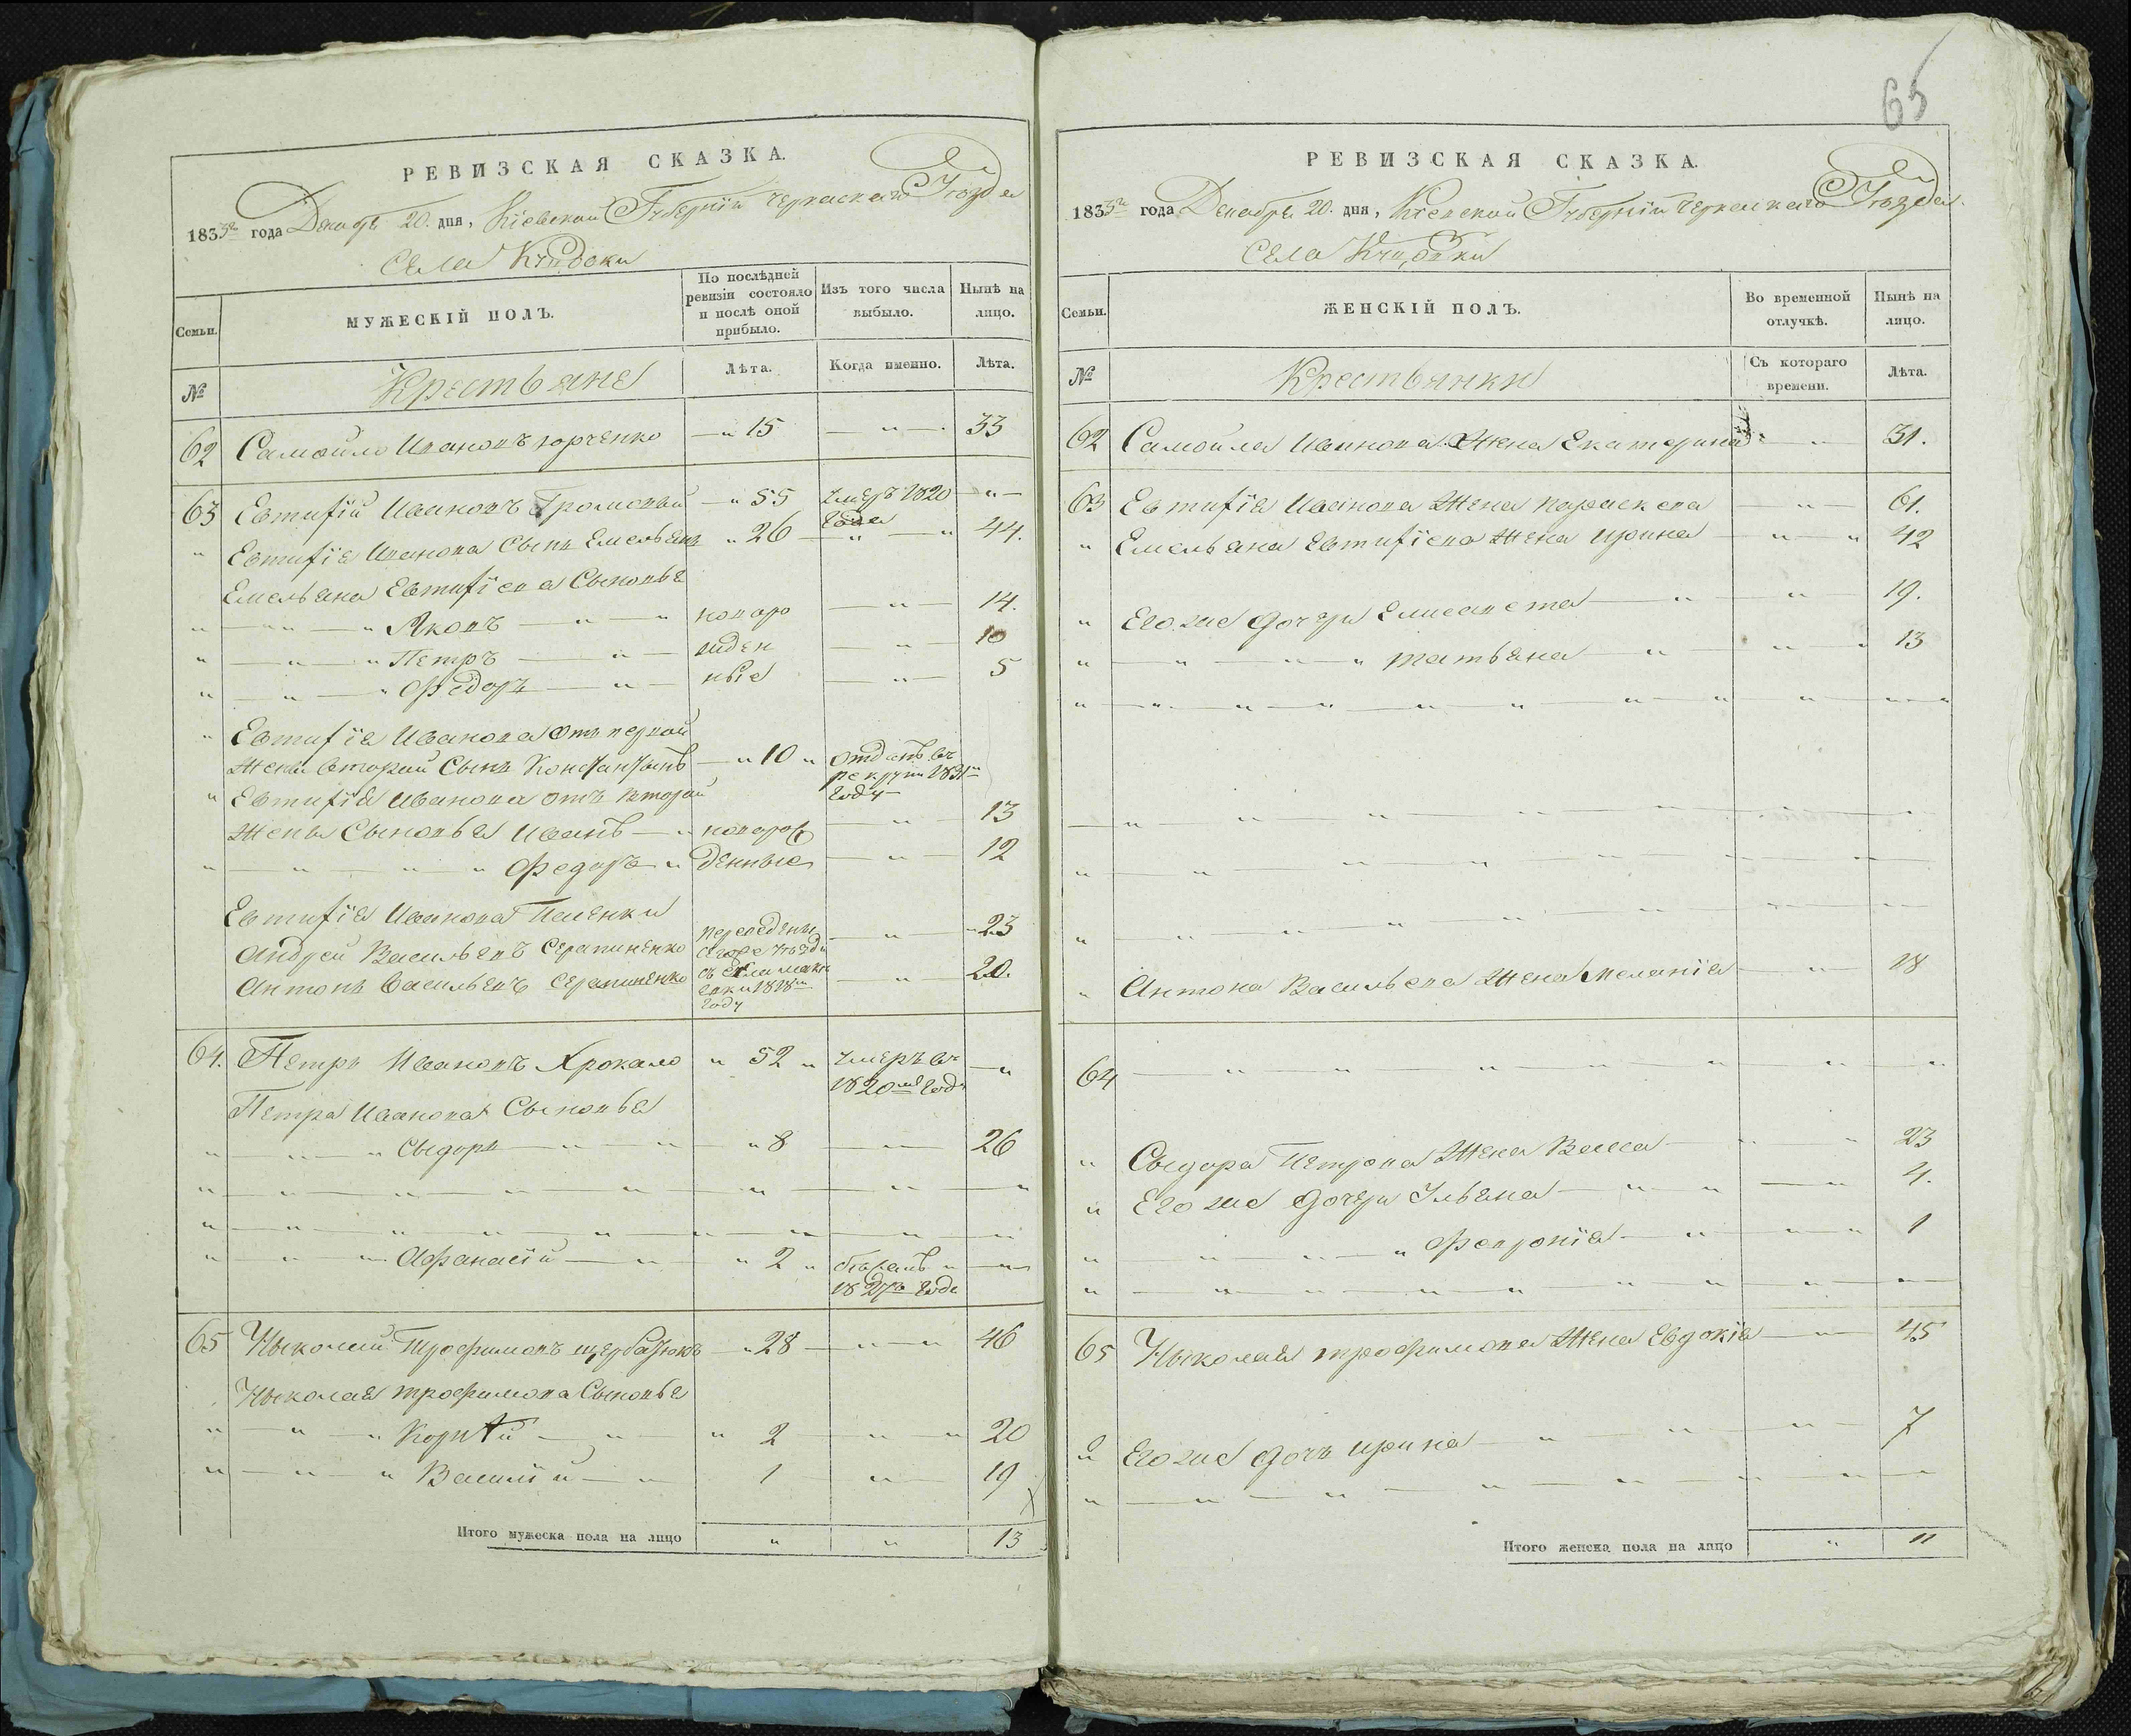 65
РЕВИЗСКАЯ СКАЗКА.
1835го года Декабря 20. дня, Кіевской Губерніи Черкаскаго Уѣзда
Села
МУЖЕСКІЙ ПОЛЪ.
Семьи.
По послѣдней ревизіи состояло и послѣ оной прибыло.
Изъ того числа выбыло.
Нынѣ на лицо.
№
Крестьяне
Лѣта.
Когда именно.
Лѣта.
62 Самойло Ивановъ Юрченко — " 15 — " — 33
63 Евтифій Ивановъ Громовый — " 55 умеръ 1820 года — " —
" Евтифія Иванова Сынъ Емельянъ " 26 — " — " 44.
Емельяна Евтифіева Сыновья
" — " — " Яковъ — " — " новоро — " — 14.
" — " — " Петръ — " — жден — " — 10
" — " — " Федоръ — " — ные — " — 5
" Евтифія Иванова отъ первой
жены второй Сынъ Константынъ — " 10 " отданъ въ рекруты 1831м году
" Евтифія Иванова отъ второй
жены Сыновья Иванъ — " новорож — " — 13
" — " — " — " Федоръ " денные — " — 12
Евтифія Иванова
Андрей Васильевъ Серапиненко переведены сего же уѣзда — " — " 23
Антонъ Васильевъ Серапиненко съ села 1818м году — " — 20.
64. Петръ Ивановъ Крокало " 52 " умеръ въ 1820мъ году — "
Петра Иванова Сыновья
" — " — " Сыдоръ — " — " — " 8 — " — 26
" — " — " Афанасій — " — " 2 " 18 году — " —
65 Ныколай Трофимовъ Щербатюкъ — " 28 — " — " 46
Ныколая Трофимова Сыновья
" — " — " Корнѣй — " — " 2 " " 20
" — " — " Василій — " 1 " 19
Итого мужеска пола на лицо " " 13
РЕВИЗСКАЯ СКАЗКА.
1835го года Декабря 20. дня, Кіевской Губерніи Черкаскаго Уѣзда.
Села
ЖЕНСКІЙ ПОЛЪ.
Семьи.
Во временной отлучкѣ.
Нынѣ на лицо.
№
Крестьянки
Съ котораго времени.
Лѣта.
62 Самойла Иванова Жена Екатерина — " — 31.
63 Евтифія Иванова Жена Параскева — " — 61.
" Емельяна Евтифіева Жена Ирина — " — " 42
" Его же дочери Елисавета — " — " — 19.
" — " — " — " Татьяна — " — " — " 13
" Антона Васильева Жена Меланія — " — 18
64 — " — " — " — " — " — " — "
" Сыдора Петрова Жена Васса — " — " 23
" Его же дочери Ульяна — " — " — " 4.
" — " — " — " Февронія — " — " — " 1
65 Ныколая Трофимова Жена Евдокія — " — 45
" Его же дочь Ирина — " — " — " — 7
Итого женска пола на лицо " 11